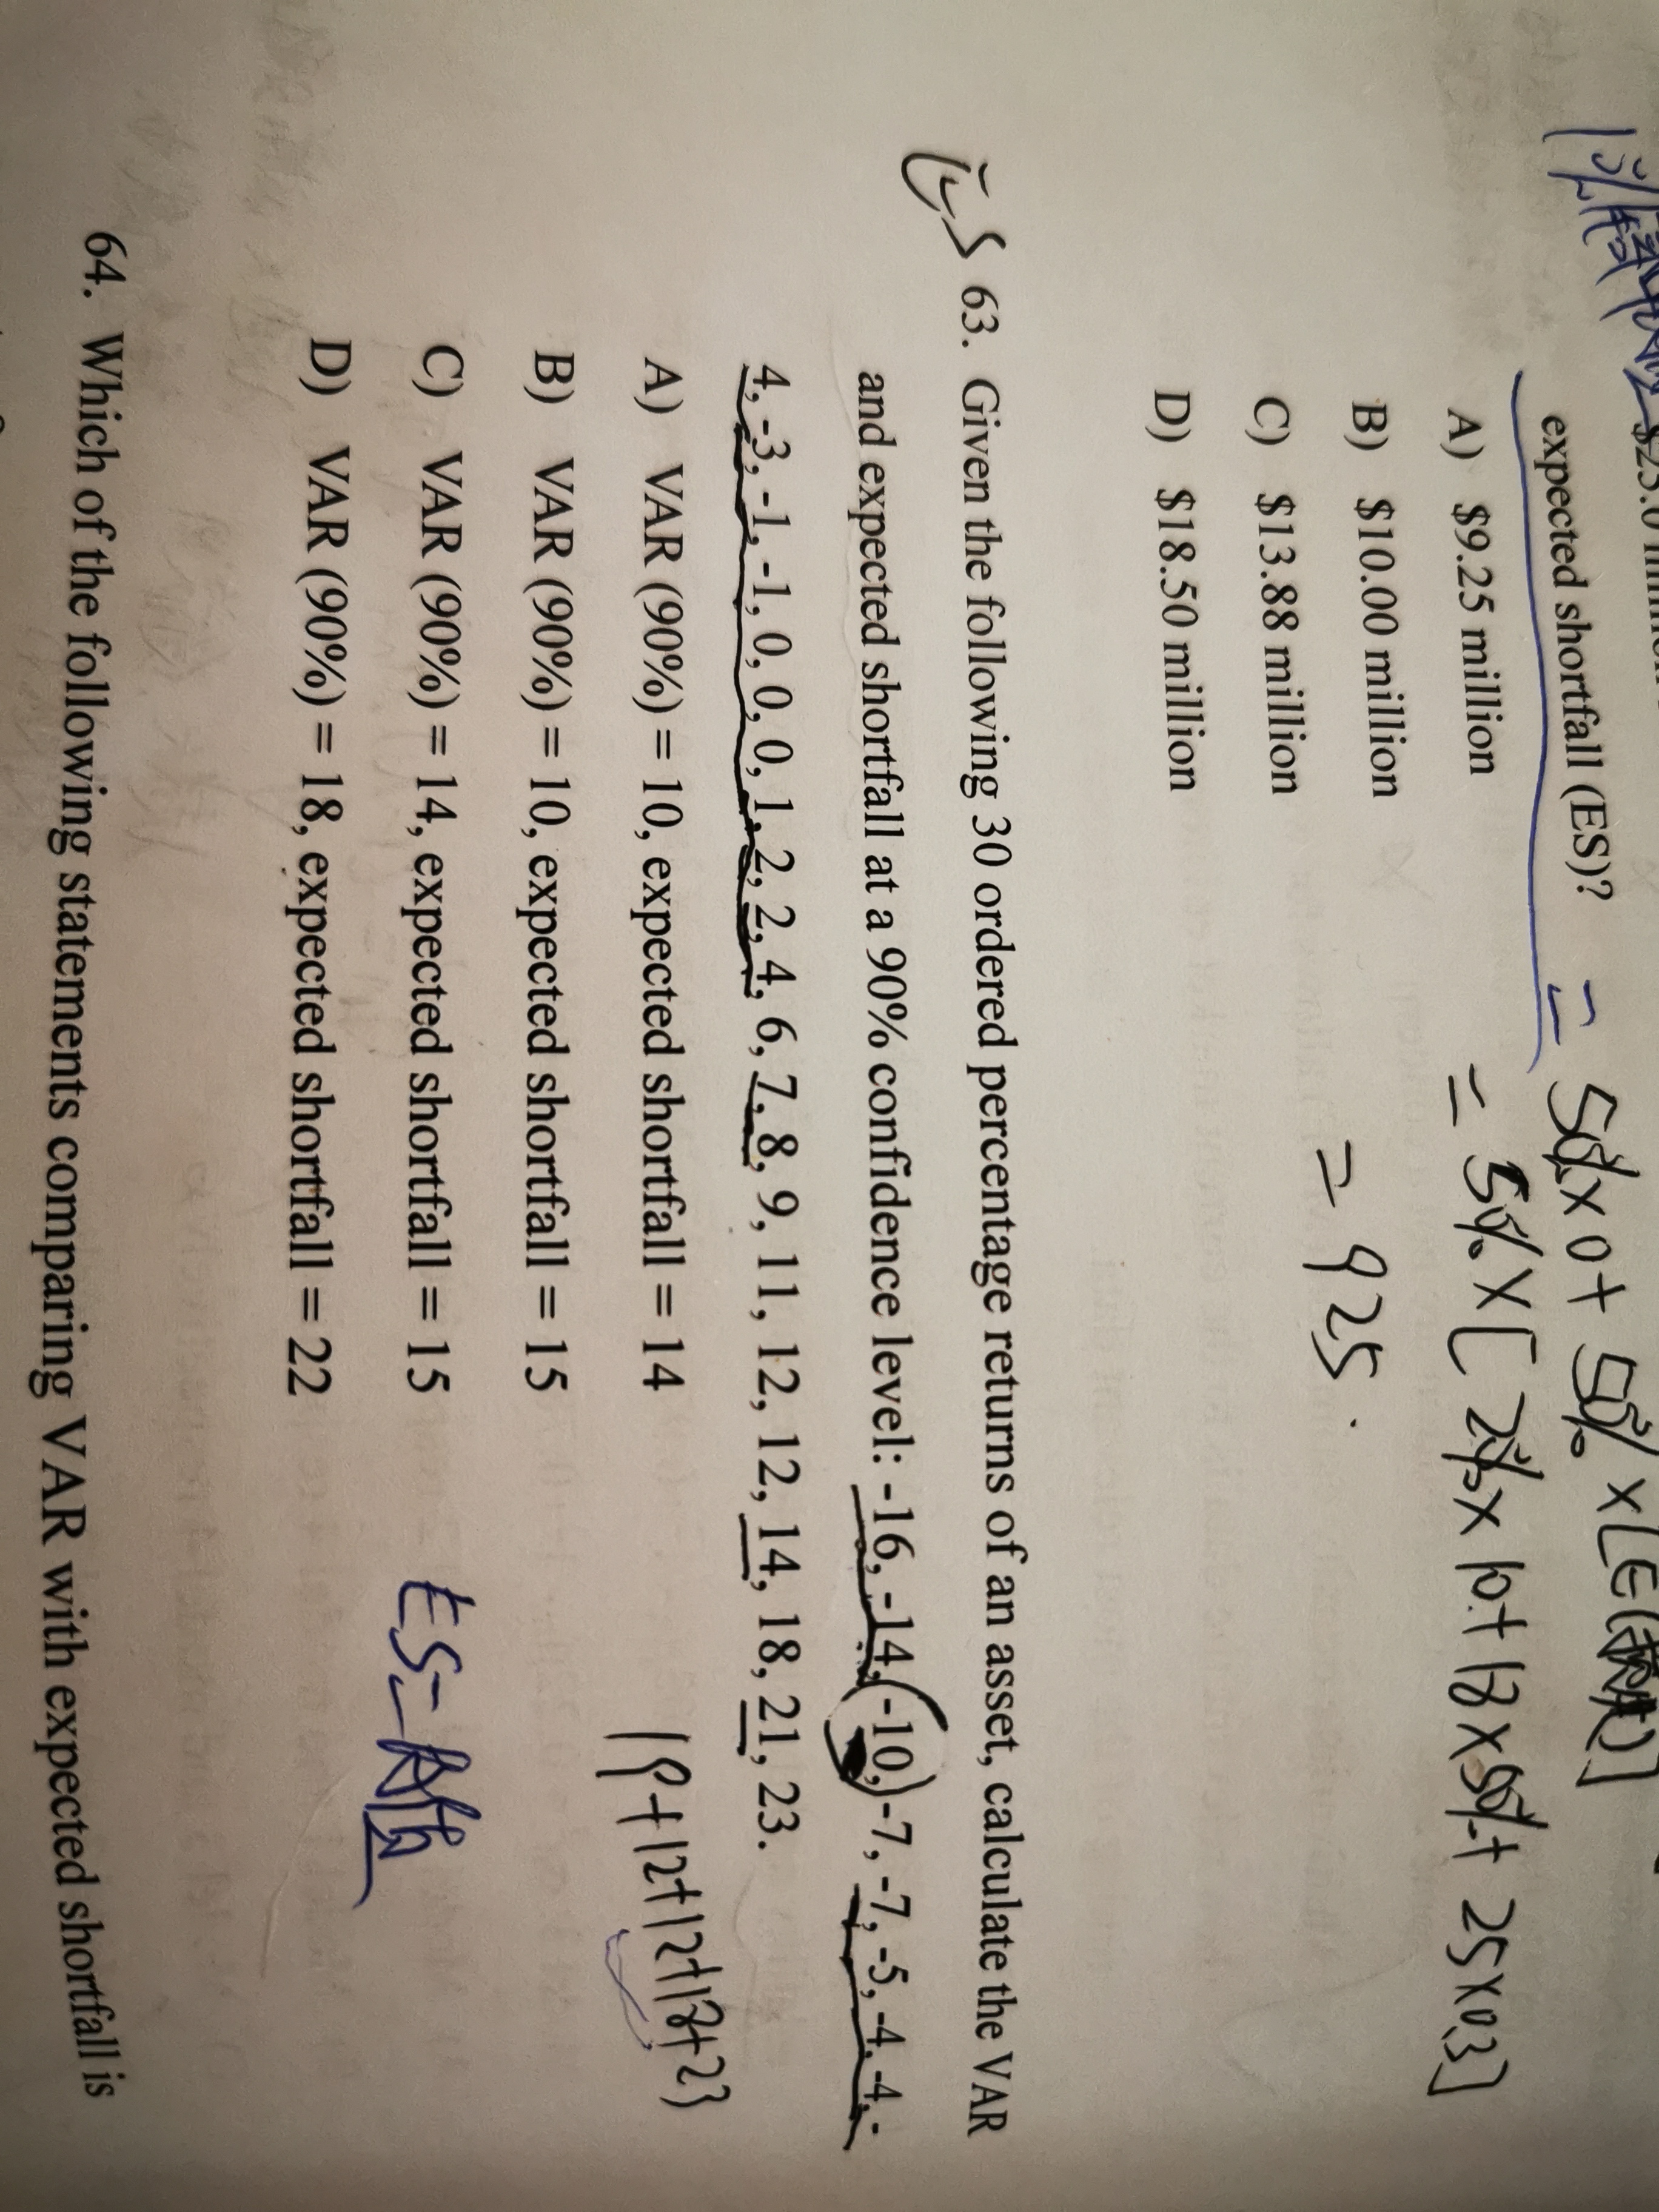 expected shortfall (ES)? = 50% x 0 + 50%
A) $9.25 million
= 50% x [ 20% x 10 + 18 x 50% + 25 x 0.3 ]
B) $10.00 million
= 9.25.
C) $13.88 million
D) $18.50 million
63. Given the following 30 ordered percentage returns of an asset, calculate the VAR
and expected shortfall at a 90% confidence level: -16, -14, -10, -7, -7, -5, -4, -4, -
4, -3, -1, -1, 0, 0, 0, 1, 2, 2, 4, 6, 7, 8, 9, 11, 12, 12, 14, 18, 21, 23.
A) VAR (90%) = 10, expected shortfall = 14
B) VAR (90%) = 10, expected shortfall = 15
C) VAR (90%) = 14, expected shortfall = 15
D) VAR (90%) = 18, expected shortfall = 22
64. Which of the following statements comparing VAR with expected shortfall is